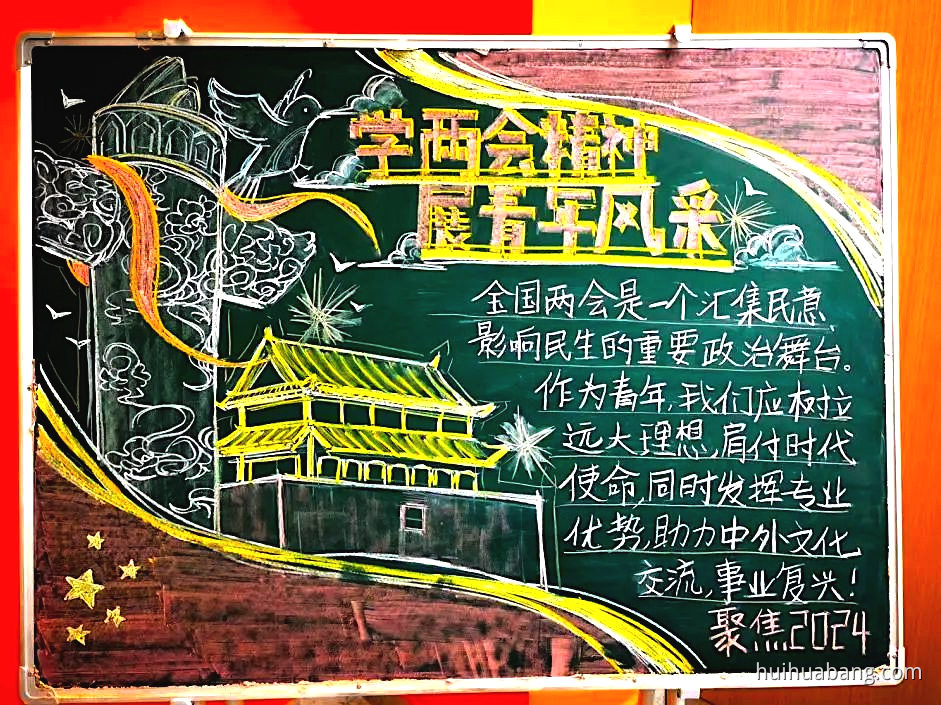 学两会精神
展青年风采
全国两会是一个汇集民意、
影响民生的重要政治舞台。
作为青年,我们应树立
远大理想,肩付时代
使命,同时发挥专业
优势,助力中外文化
交流,事业复兴!
聚焦2024
huihuabang.com